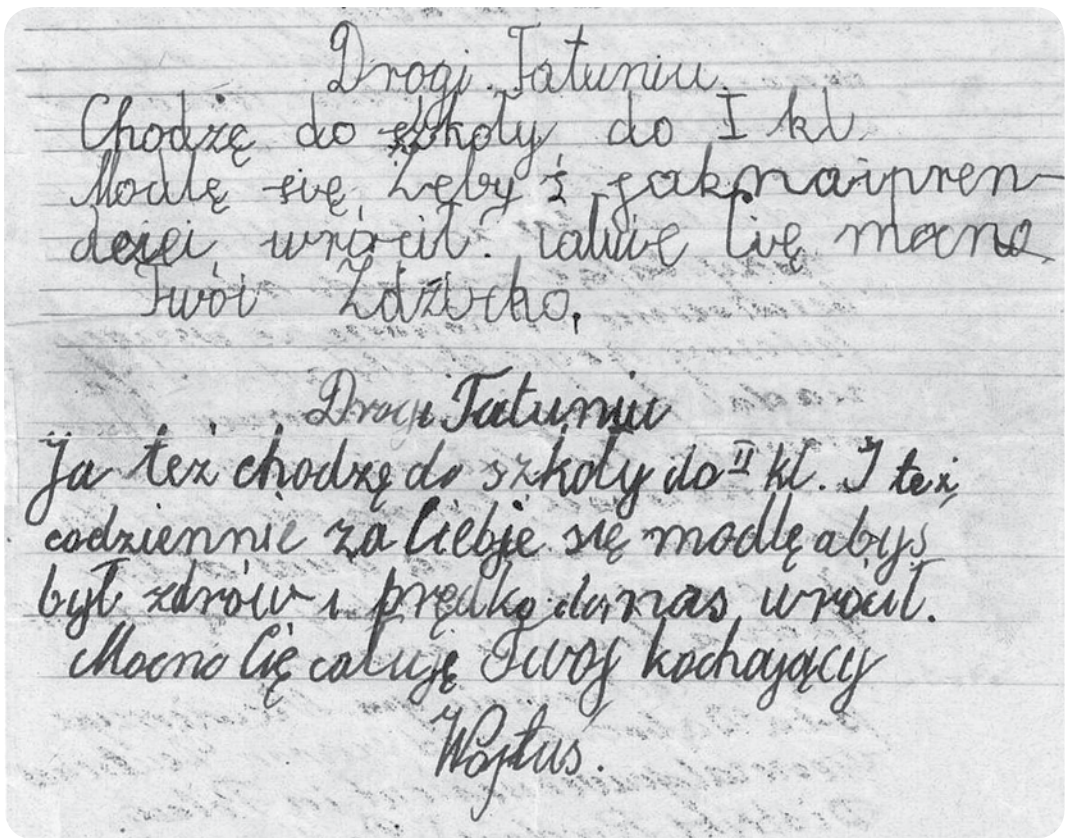 Drogi Tatuniu.
Chodzę do szkoły do I kl.
Modlę się, żęby ś jaknaipren-
dziei wrócił. całuię Cię mocno
Twói Zdzicho.
Drogi Tatuniu
Ja też chodzę do szkoły do II kl. I też
codziennie za Ciebie się modlę abyś
był zdrów i prędko do nas wrócił.
Mocno Cię całuję Twój kochający
Wojtuś.